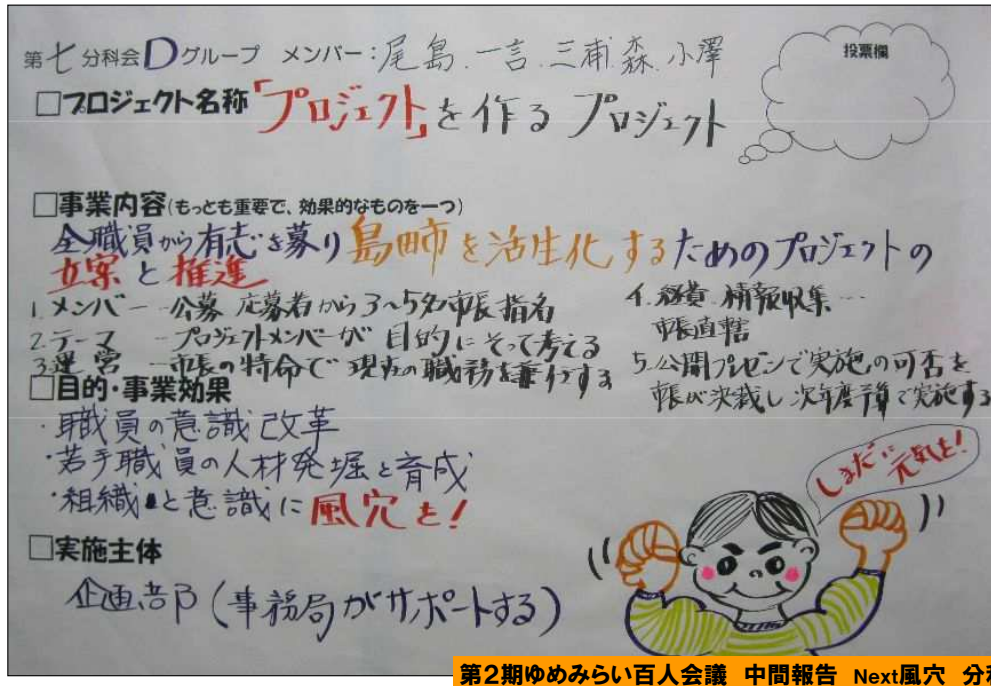 第七分科会Dグループ メンバー:尾島.一言.三浦.森.小澤
投票欄
□プロジェクト名称「プロジェクト」を作る プロジェクト
□事業内容(もっとも重要で、効果的なものを一つ)
全職員から有志を募り島田市を活性化するためのプロジェクトの
立案と推進
1.メンバー…公募 応募者から3~5名市長指名
2.テーマ …プロジェクトメンバーが目的にそって考える
3.運営 …市長の特命で現在の職務を兼行する
4.経費・情報収集…
市長直轄
5.公開プレゼンで実施の可否を
市長が決裁し次年度予算で実施する
□目的・事業効果
・職員の意識改革
・若手職員の人材発掘と育成
・組織と意識に風穴を!
しまだに元気を!
□実施主体
企画部(事務局がサポートする)
第2期ゆめみらい百人会議 中間報告 Next風穴 分科